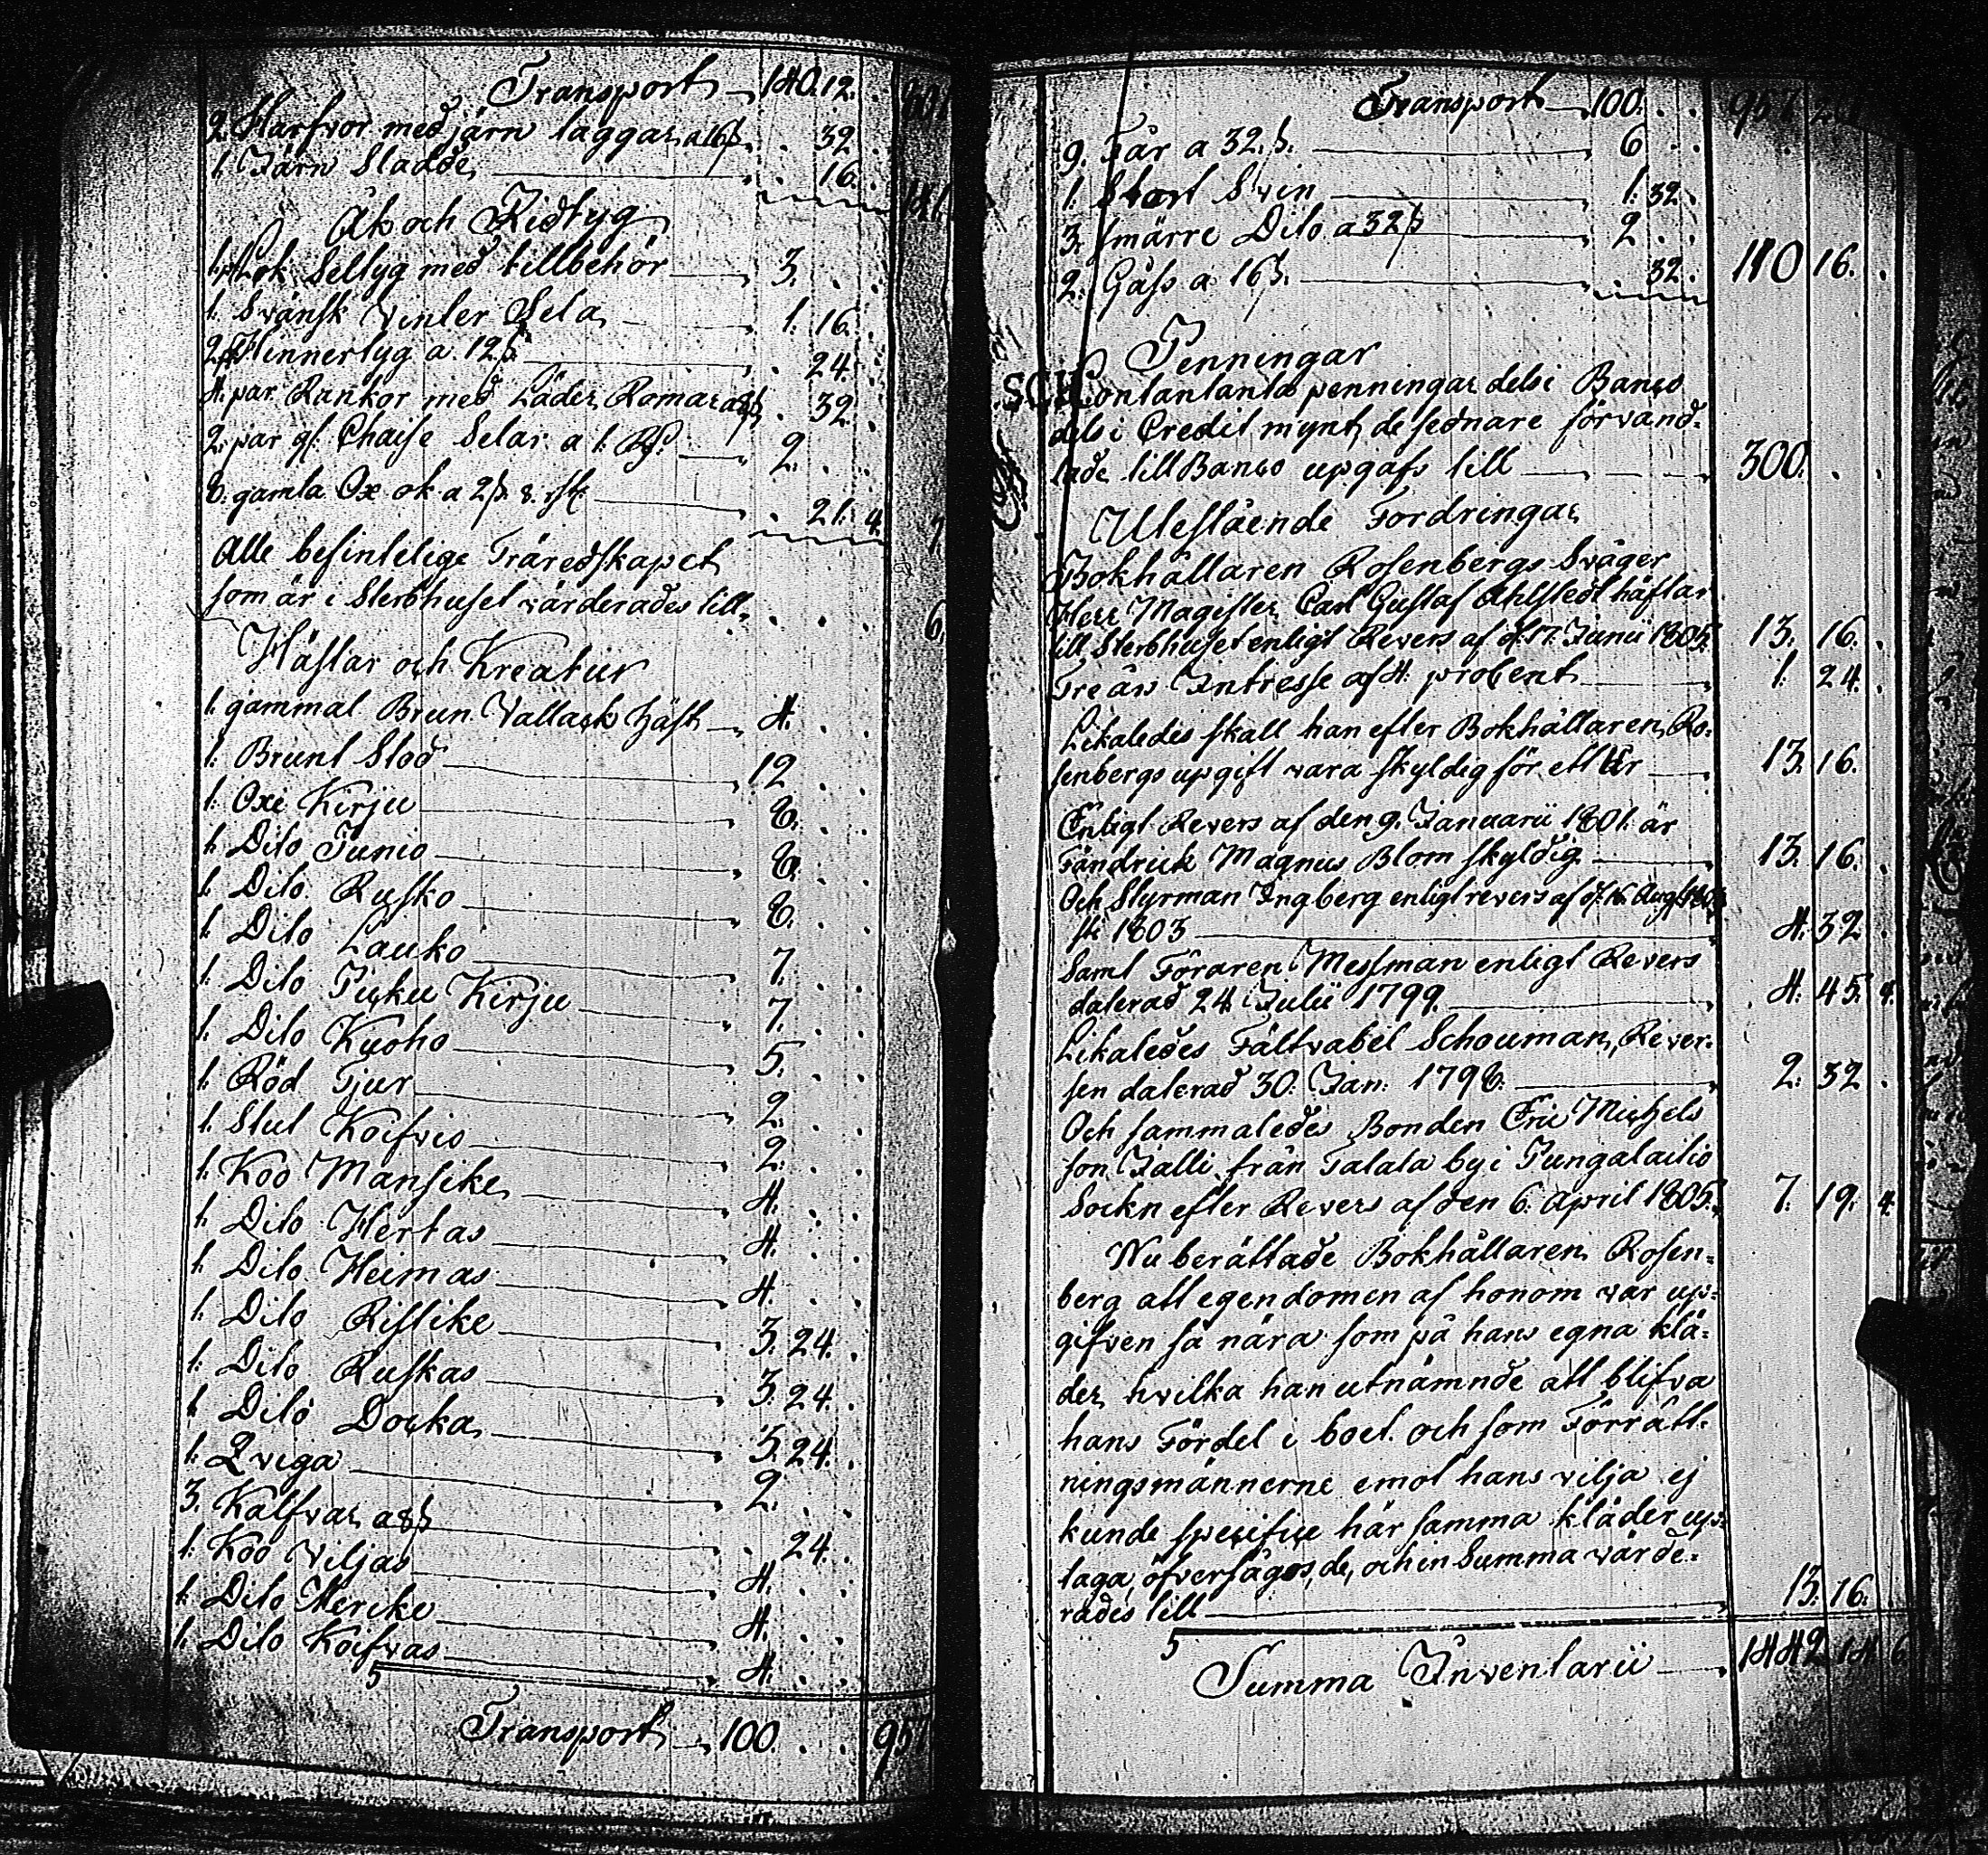 Transport 140. 12. .
2 Harfvor med järn taggar a 16 ß . 32 .
1. Järn Sladde . 16. .
Åk och Ridtyg
1. Seltyg med tillbehör 3. . .
1. Svänsk Vinter Sela 1. 16. .
2. Hinnertyg a 12 ß . 24. .
4. par Rankor med Läder Romar a 8 ß . 32. .
2. par gl. Chaise Selar a 1. Rd. 2. . .
8. gamla Ox ok a 2 ß. 8. . 21. 4.
Alle befintelige Träredskapet
som är i Sterbhuset värderades till . . . 6.
Hästar och Kreatur
1. gammal Brun Vallack häst 4. . .
1. Brunt Stod 12 . .
1. Oxe Kirju 8. . .
1. Dito Junio 8. . .
1. Dito Rusko 8. . .
1. Dito Lauko 7. . .
1. Dito Picku Kirju 7. . .
1. Dito Kuoho 5. . .
1. Röd Tjur 2. . .
1. Stut Koifvio 2. . .
1. Koo Mansike 4. . .
1. Dito Hertas 4. . .
1. Dito Heimas 4. . .
1. Dito Ristike 3. 24. .
1. Dito Ruskas 3. 24. .
1 Dito Docka 3. 24. .
1. Qviga 2. . .
3. Kalfvar a 8 ß . 24. .
1. Koo Viljas 4. . .
1. Dito Mercke 4. . .
1. Dito Koifvas 4. . .
5
Transport 100. . . 957
Transport 100. . . 957
9. Får a 32. ß. 6 . .
1. Stort Svin 1. 32. .
3. smärre Dito a 32 ß 2 . .
2. Gäss a 16 ß. . 32. . 110 16. .
Penningar
Contantanta penningar dels i Banco
dels i Credit mynt, de sednare förvand-
lade till Banco upgafs till 300. . .
Utestående Fordringar
Bokhållaren Rosenbergs Svåger
Herr Magister Carl Gustaf Ahlstedt häftar
till Sterbhuset enligt Revers af d. 17. Junii 1805. 13. 16. .
Tre års Intresse af 4. procent 1. 24. .
Likaledes skall han efter Bokhållaren Ro-
senbergs upgift vara skyldig för ett År 13. 16.
Enligt Revers af den 9. Januarii 1801. är
Fändrick Magnus Blom skyldig 13. 16. .
Och Styrman Ingberg enligt revers af d. 16. Augu-
sti 1803 4. 32 .
Samt Föraren Messman enligt Revers
daterad 24 Julii 1799. 4. 45. 4.
Likaledes Fältvabel Schouman, Rever-
sen daterad 30. Jan. 1798. 2. 32 .
Och sammaledes Bonden Eric Michels
son Jalli från Talala by i Pungalaitio
Sockn efter Revers af den 6. April 1805. 7. 19. 4.
Nu berättade Bokhållaren Rosen-
berg att egendomen af honom var up-
gifven så nära som på hans egna klä-
der, hvilka han utnämnde att blifva
hans Fördel i boet. och som Förrätt-
ningsmännerne emot hans vilja ej
kunde specifice här samma kläder up-
taga, öfversågos, de, och in Summa värde-
rades till 13. 16.
5
Summa Inventarii 1442 14 6